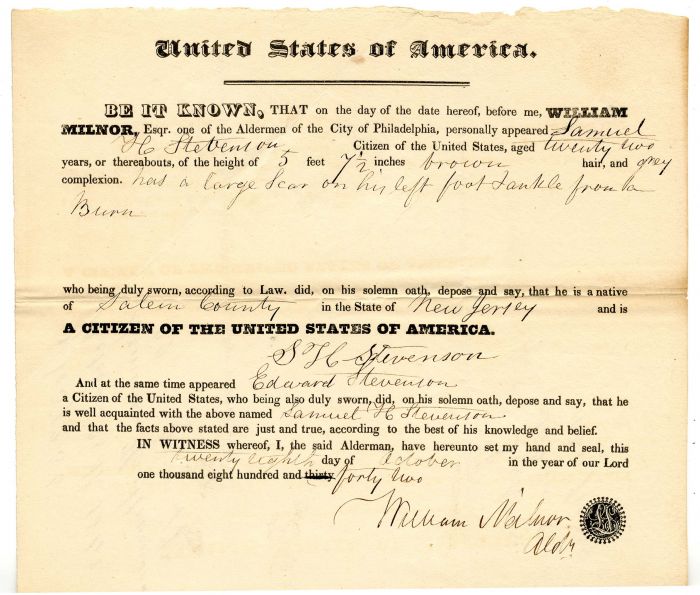 United States of America.
BE IT KNOWN, THAT on the day of the date hereof, before me, WILLIAM
MILNOR, Esqr. one of the Aldermen of the City of Philadelphia, personally appeared Samuel
H Stevenson Citizen of the United States, aged twenty two
years, or thereabouts, of the height of 5 feet 7½ inches brown hair, and grey
complexion. has a large Scar on his left foot & ankle from a
Burn
who being duly sworn, according to Law. did, on his solemn oath, depose and say, that he is a native
of Salem County in the State of New Jersey and is
A CITIZEN OF THE UNITED STATES OF AMERICA.
S H Stevenson
And at the same time appeared Edward Stevenson
a Citizen of the United States, who being also duly sworn, did, on his solemn oath, depose and say, that he
is well acquainted with the above named Samuel H Stevenson
and that the facts above stated are just and true, according to the best of his knowledge and belief.
IN WITNESS whereof, I, the said Alderman, have hereunto set my hand and seal, this
twenty eighth day of October in the year of our Lord
one thousand eight hundred and thirty forty two
William Milnor